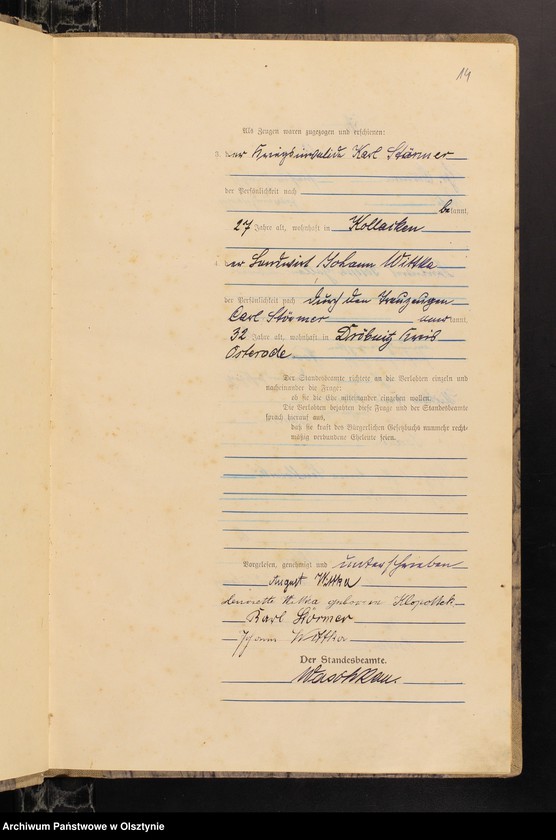 14
Als Zeugen waren zugezogen und erschienen:
der Kriegsinvalide Karl Störmer
der Persönlichkeit nach
be kannt,
27 Jahre alt, wohnhaft in Kollacken
der Landwirt Johann Wittka
der Persönlichkeit nach durch den Trauzeugen
Carl Störmer kannt,
32 Jahre alt, wohnhaft in Dröbnitz Kreis
Osterode
Der Standesbeamte richtete an die Verlobten einzeln und
nacheinander die Frage:
ob sie die Ehe miteinander eingehen wollen.
Die Verlobten bejahten diese Frage und der Standesbeamte
sprach hierauf aus,
daß sie kraft des Bürgerlichen Gesetzbuchs nunmehr recht-
mäßig verbundene Eheleute seien.
Vorgelesen, genehmigt und unterschrieben
August Wittka
Henriette Wittka geboren Klopottek
Karl Störmer
Johann Wittka
Der Standesbeamte.
Waschkau.
Archiwum Państwowe w Olsztynie